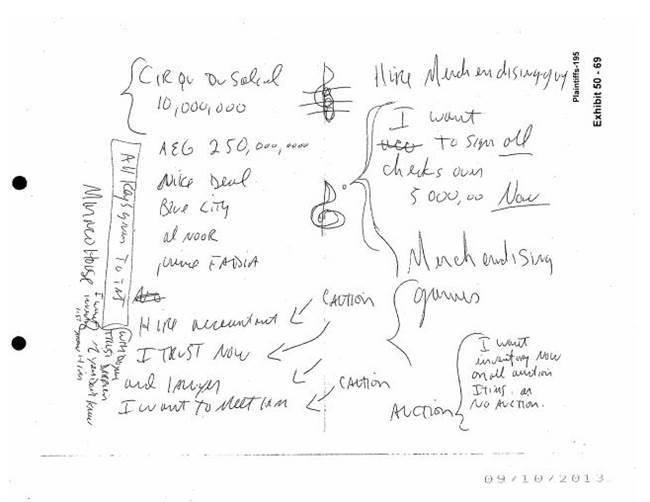 CIRQU DU Soleil
10,000,000
AEG 250,000,0000
Nike Deal
Blue City
al NOOR
FADIA
HIRE accountant
I TRUST NOW
and lawyer
I want To Meet him
All Keys given To
MONACO House
CAUTION
CAUTION
Hire Merchendising guy
I want
to sign all
checks over
5 000,00 Now
Merchendising
games
AUCTION
I want
inventory NOW
on all auction
Items or
No AUCTION.
Plaintiffs-195
Exhibit 50 - 69
09/10/2013